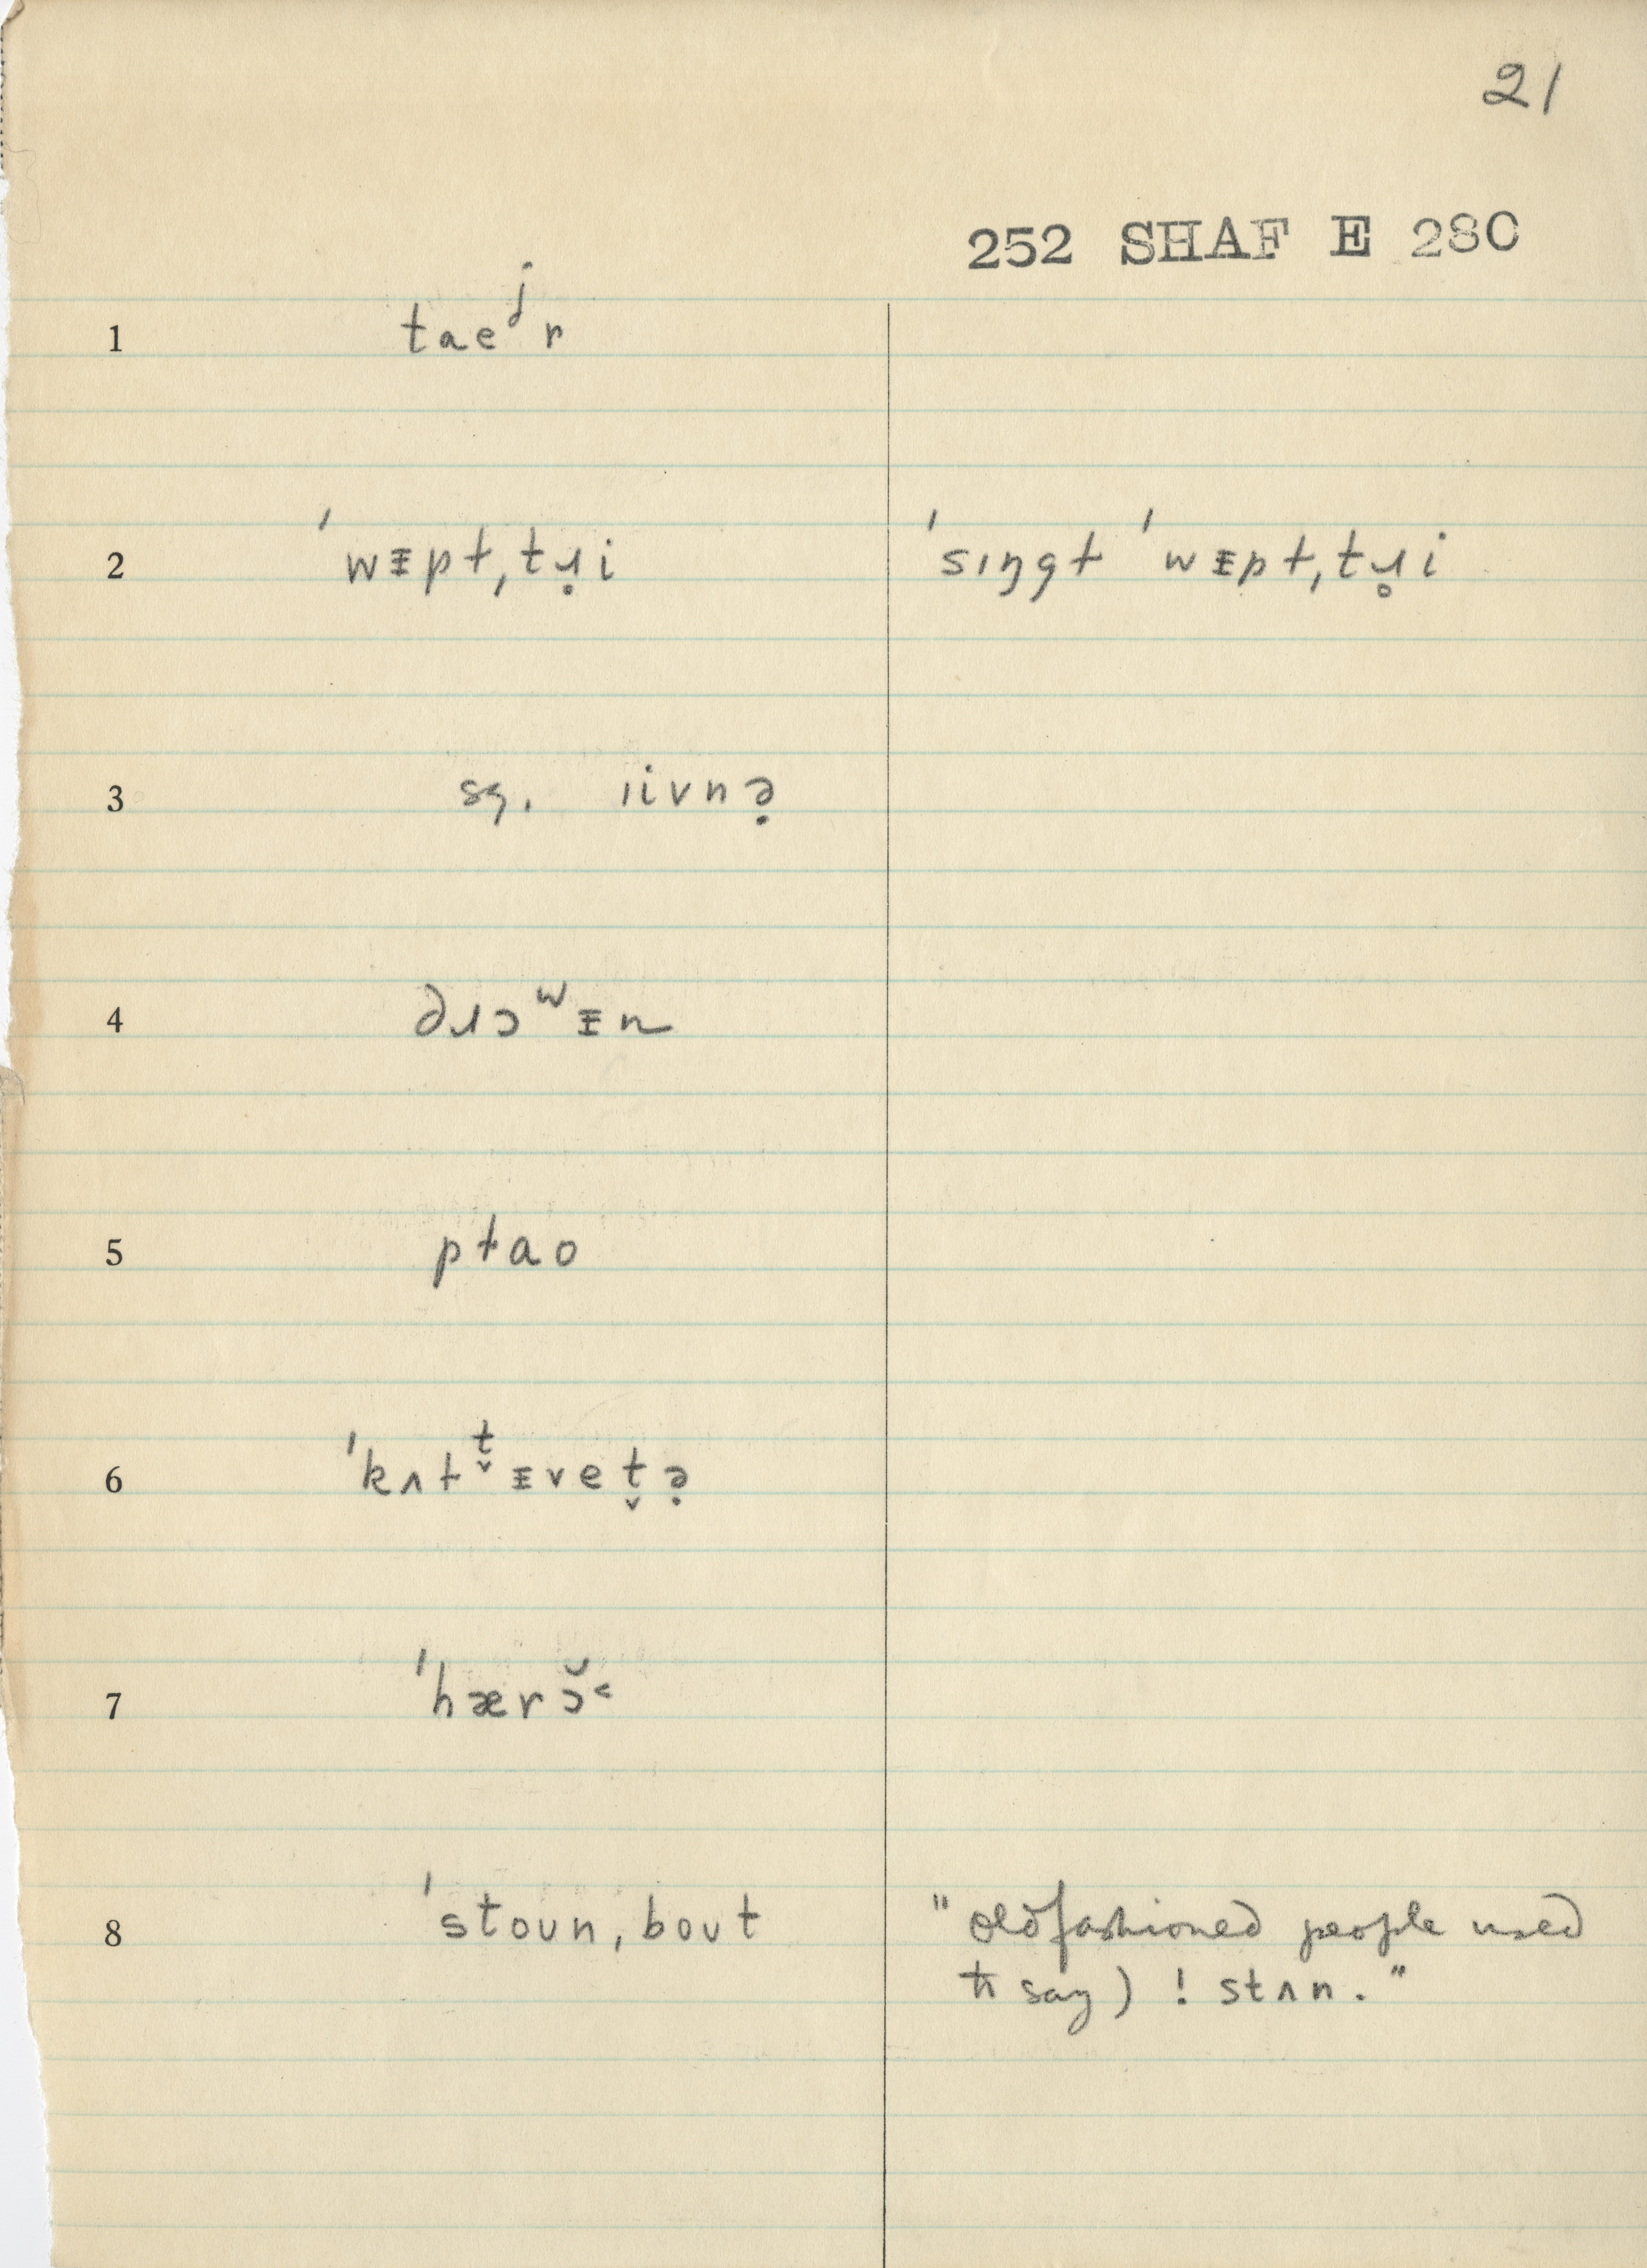 21
252 SHAF E 280
1 taeʲr
2 ˈwᵻpɫˌtɹ̥i ˈsɪŋgɫ ˈwᵻpɫˌtɹ̥i
3 sg. ɪivnə̣
4 ∂ɹɔʷᵻn
5 pɫao
6 ˈkʌɫᵗ̬ᵻvet̬ə̣
7 ˈhærɔ̆˂
8 ˈstoʊnˌboʊt "oldfashioned people used
to say) ! stʌn."